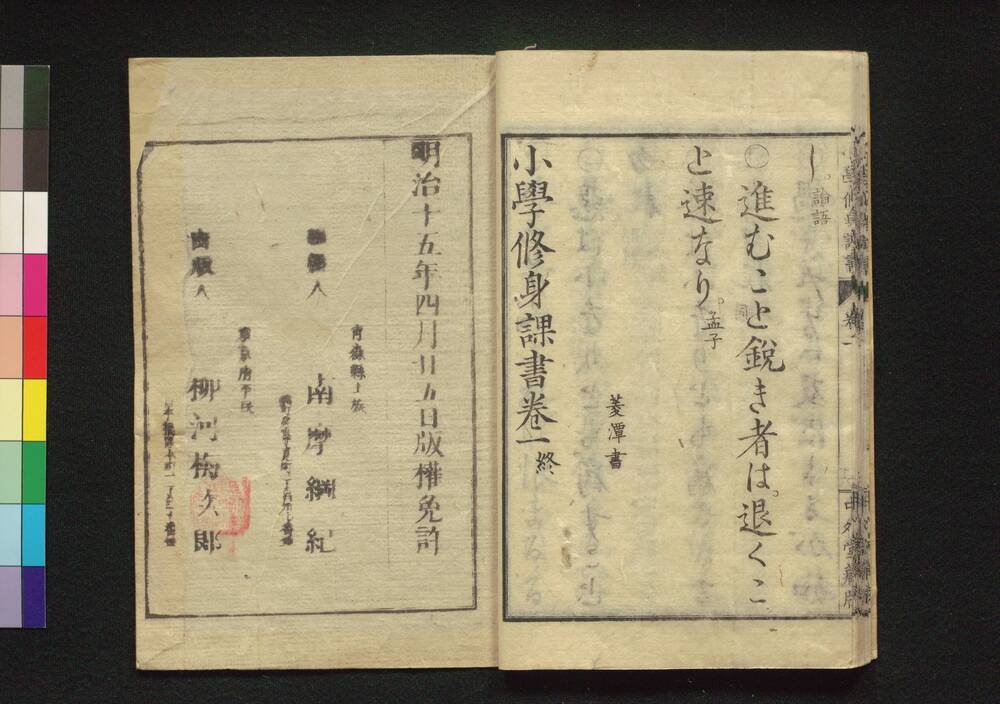 し。論語
○進むこと鋭き者は。退くこ
と速なり。孟子
菱潭書
小學修身課書巻一終
小學修身課書
巻一
中外堂藏版
明治十五年四月廿五日版權免許
青森縣士族
編輯人
南摩綱紀
東京府平民
出版人
柳河梅次郎